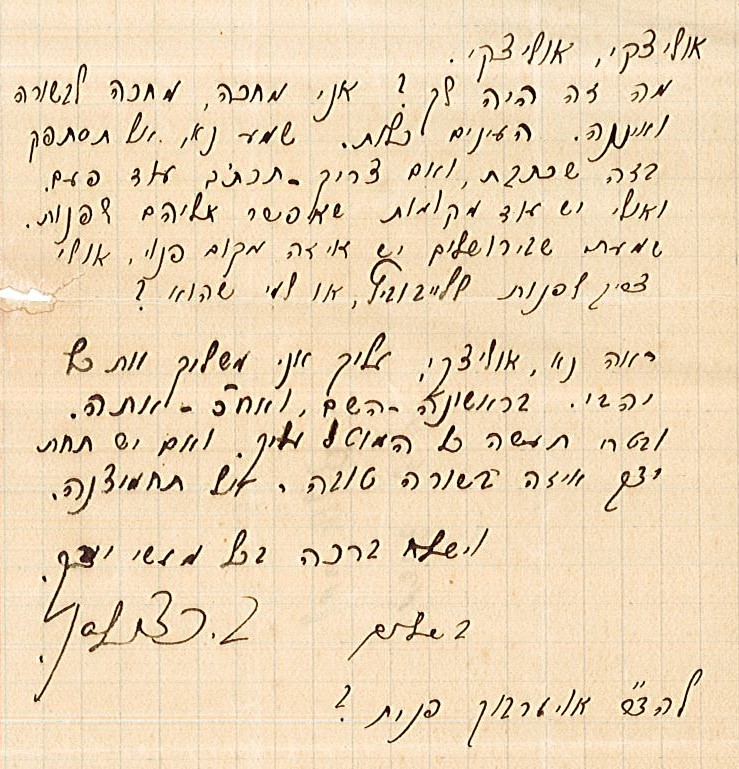 אוליצקי, אוליצקי.
מה זה היה לך? אני מחכה, מחכה לבשורה
ואיננה. העינים כלות. שמע נא, אל תסתפק
בזה שכתבת, ואם צריך - תכתב עוד פעם.
ואולי יש עוד מקומות שאפשר אליהם לפנות.
שמעתי שבירושלים יש איזה מקום פנוי, אולי
צריך לפנות ללייבוביץ, או למי שהוא?
ראה נא, אוליצקי, עליך אני משליך את כל
יהבי. בראשונה - השם, ואח"כ - אתה.
ובטח תעשה כל המוטל עליך. ואם יש תחת
ידך איזה בשורה טובה, אל תחמיצנה.
וישלח ברכה בכל מעשי ידיך.
בשלום
להצ"ה אויערבוך פנית?